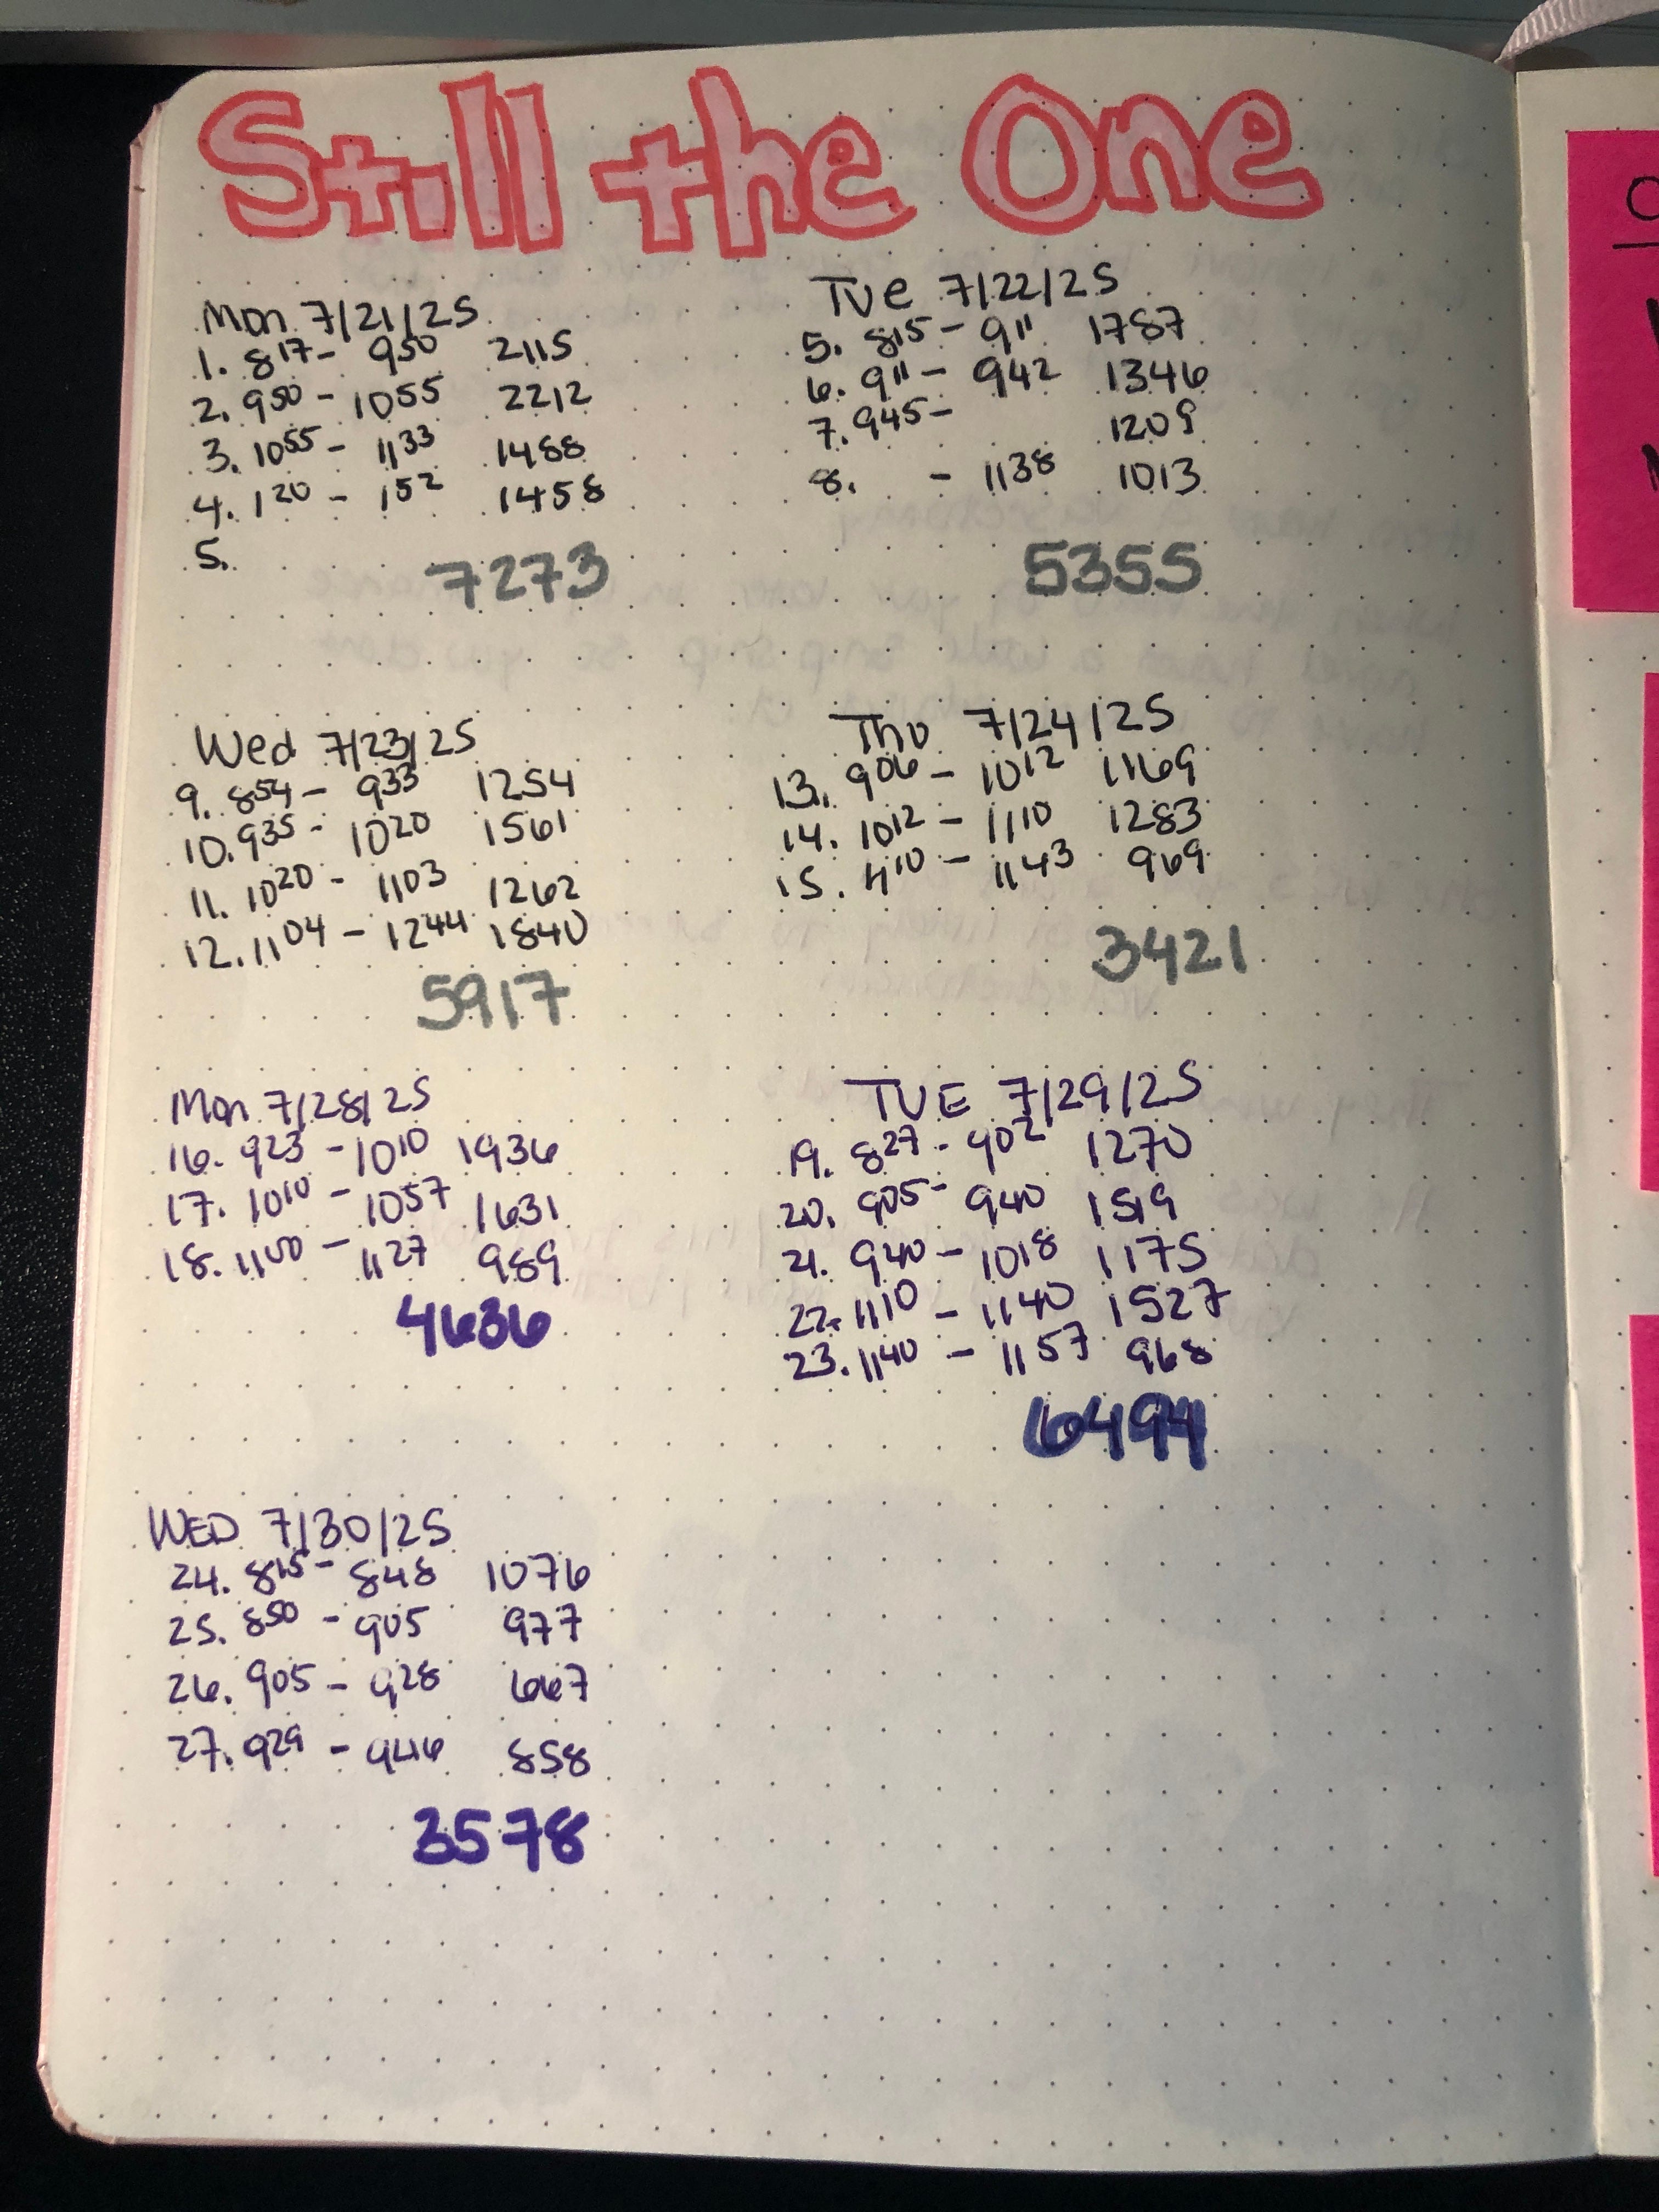 Still the One
Mon 7/21/25
1. 817 - 950 2115
2. 950 - 1055 2212
3. 1055 - 1133 1488
4. 120 - 152 1458
5.
7273
Tue 7/22/25
5. 815 - 911 1787
6. 911 - 942 1346
7. 945 - 1209
8. - 1138 1013
5355
Wed 7/23/25
9. 854 - 933 1254
10. 935 - 1020 1561
11. 1020 - 1103 1262
12. 1104 - 1244 1840
5917
Thu 7/24/25
13. 906 - 1012 1169
14. 1012 - 1110 1283
15. 1110 - 1143 969
3421
Mon 7/28/25
16. 923 - 1010 1936
17. 1010 - 1057 1631
18. 1100 - 1127 989
4636
TUE 7/29/25
19. 827 - 902 1270
20. 905 - 940 1519
21. 940 - 1018 1175
22. 1110 - 1140 1527
23. 1140 - 1157 968
6494
WED 7/30/25
24. 815 - 848 1076
25. 850 - 905 977
26. 905 - 928 667
27. 929 - 946 858
3578